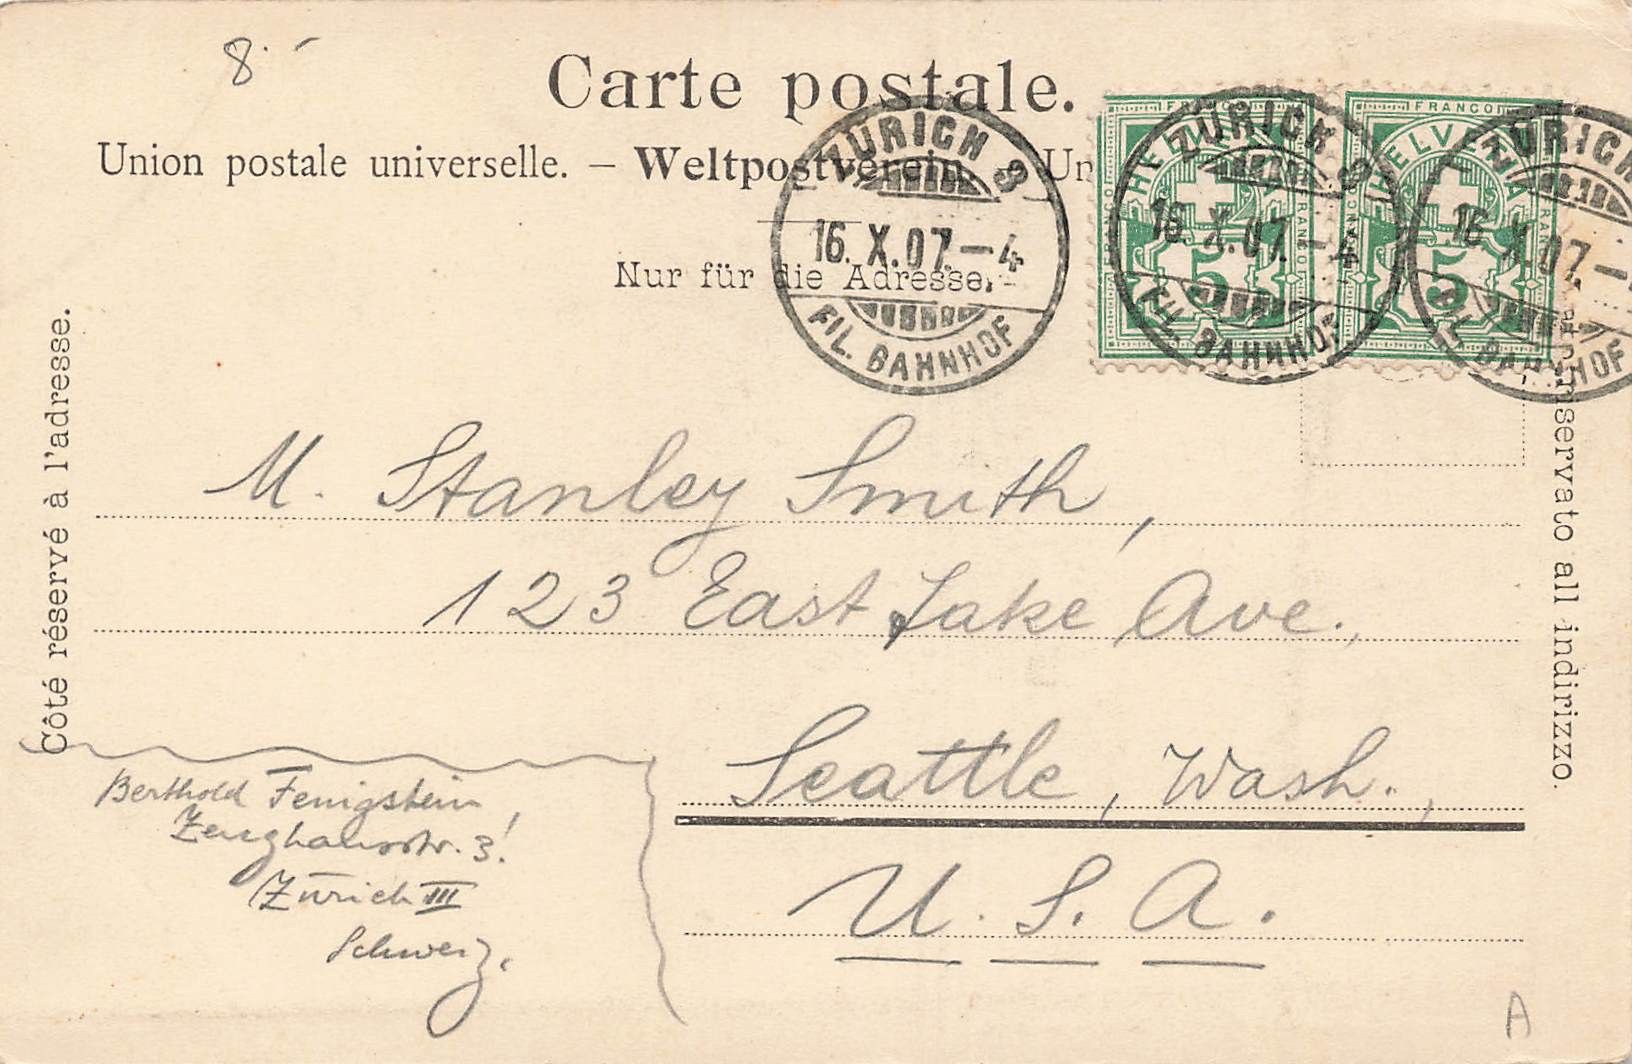 8.–
Carte postale.
Union postale universelle. – Weltpostverein. – Un
Nur für die Adresse.
ZÜRICH 9
16.X.07.–4
FIL. BAHNHOF
FRANCO
HELVETIA
FRANCO
5
ZÜRICH 9
16.X.07.–4
FIL. BAHNHOF
FRANCO
HELVETIA
FRANCO
FRANCO
5
ZÜRICH
16.X.07.–
FIL. BAHNHOF
Côté réservé à l'adresse.
riservato all indirizzo.
M. Stanley Smith,
123 East Lake Ave.,
Seattle, Wash.,
U. S. A.
Berthold Fenigstein,
Zeughausstr. 3!
Zürich III
Schweiz.
A